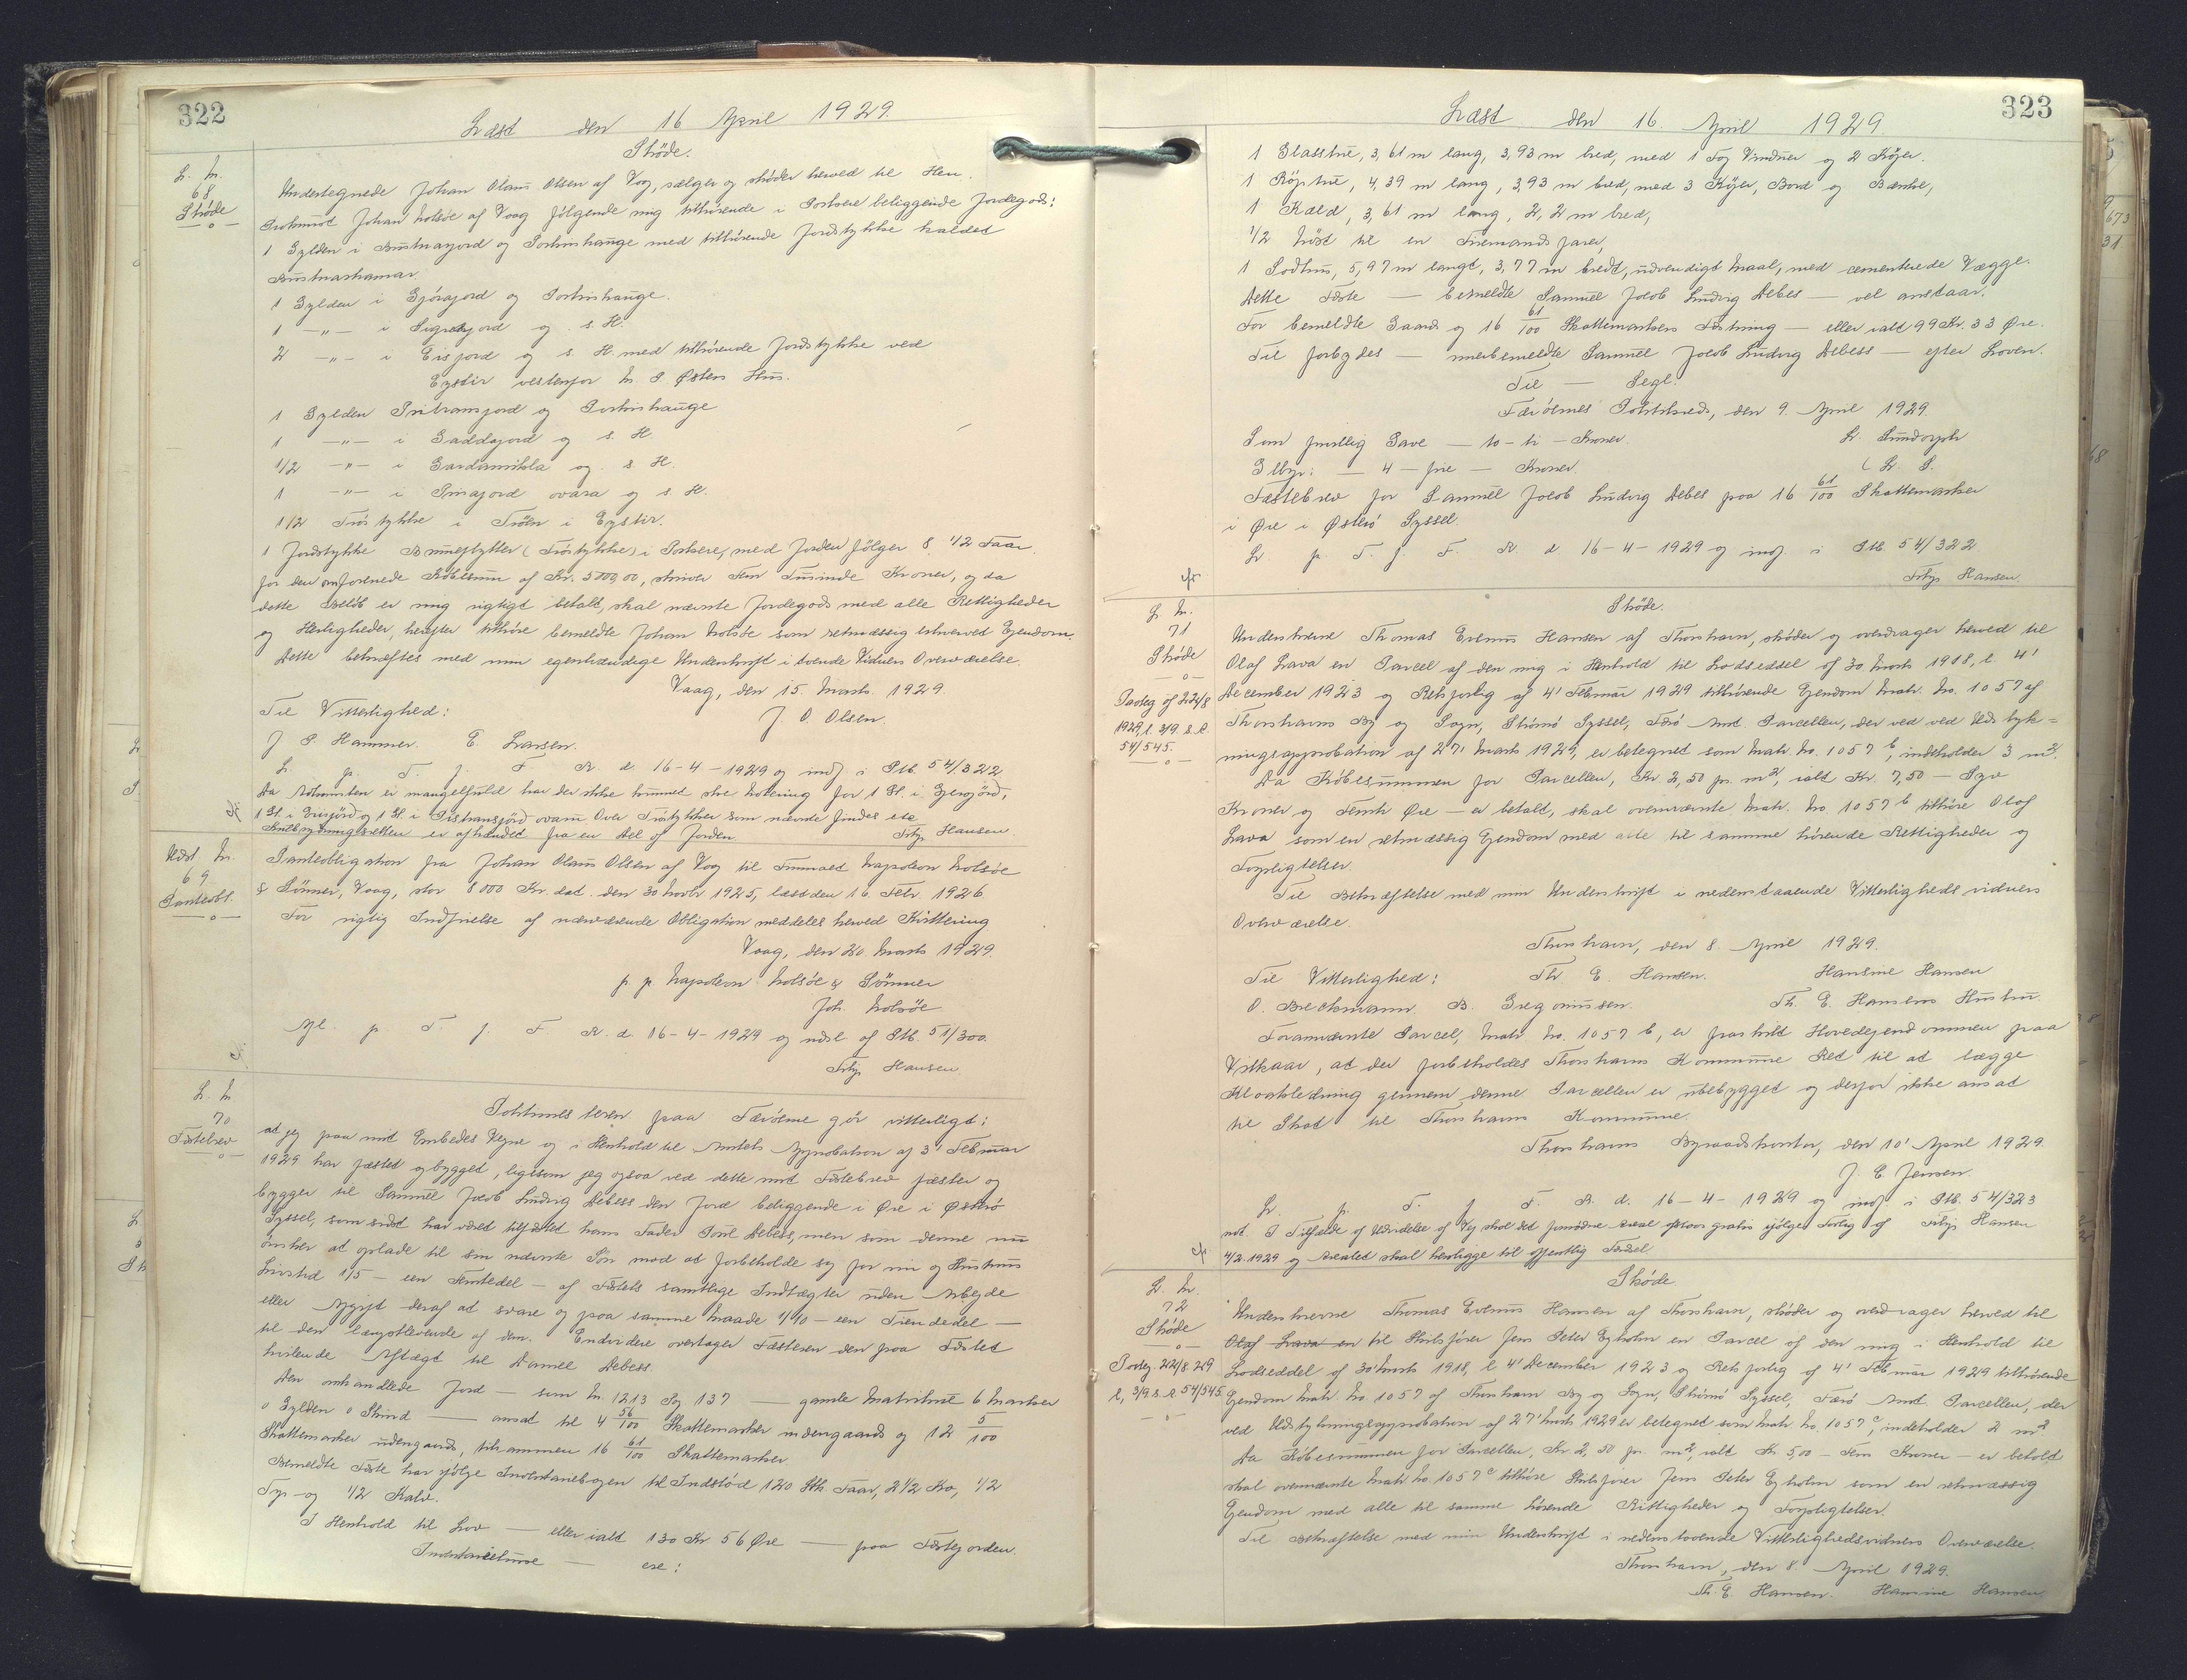 322
Læst den 16 April 1929.
Skøde.
L. Nr.
68
Skøde
Undertegnede Johan Olaus Olsen af Vog, sælger og skøder herved til Hen.
Prokurist Johan Nolsøe af Vaag følgende mig tilhørende i Porkere beliggende Jordegods:
1 Gylden i Bustnarjord og Porkirshauge med tilhørende Jordstykke kaldet
Bustnarhamar.
1 Gylden i Gjórajord og Porkirshauge.
1 -"- i Sigrisjord og s. H.
2 -"- i Eisjord og s. H. med tilhørende Jordstykke ved
Eystir vestenfor N. P. Østers Hus.
1 Gylden Pritransjord og Porkirshauge
1 -"- i Gaddajord og s. H.
1/2 -"- i Gardamikla og s H.
1 -"- i Smajord ovara og s. H.
1 1/2 Tróstykke i Tröen i Eystir.
1 Jordstykke Brunestykker (Tróstykke) i Porkere, med Jorden følger 8 1/2 Faar
for den omforenede Købesum af Kr. 5000,00, skriver Fem Tusinde Kroner, og da
dette Beløb er mig rigtigt betalt, skal nævnte Jordegods med alle Rettigheder
og Herligheder, herefter tilhøre bemeldte Johan Nolsøe som retmæssig erhvervet Ejendom.
Dette bekræftes med min egenhændige Underskrift i tvende Vidners Overværelse.
Vaag, den 15. Marts 1929.
Til Vitterlighed: J. O. Olsen.
J P. Hammer. E. Larsen.
L. p. T. f. F. R. d. 16-4-1929 og indf. i Ptb. 54/322
Da Adkomsten er mangelfuld har der ikke kunnet ske Notering for 1 Gl. i Gjorajörd,
1 Gl. i Eisjörd og 1 Gl. i Pistransjörd ovaru Over Tróstykker som nævnte findes ete
er afhændet fra en Del af Jorden. Tribj. Hansen.
Udsl. Nr.
69
Panteobl.
Panteobligation fra Johan Olaus Olsen af Vog til Firmaet Napoleon Nolsøe
& Sønner, Vaag, stor 8000 Kr. dat. den 30 Novbr 1925, læst den 16 Febr. 1926
For rigtig Indfrielse af nærværende Obligation meddeles herved Kvittering
Vaag, den 20 Marts 1929.
p. p. Napoleon Nolsøe & Sønner
Joh. Nolsöe
Afl. p. T. f. F. R. d. 16-4-1929 og udsl. af Ptb. 51/300.
Tribj. Hansen
L. Nr
70
Fæstebrev
Politimesteren paa Færøerne gør vitterligt:
at jeg paa mit Embedes Vegne og i Henhold til Amtets Approbation af 3' Februar
1929 har fæstet og bygget, ligesom jeg ogsaa ved dette mit Fæstebrev fæster og
bygger til Samuel Jacob Ludvig Debess den Jord beliggende i Øre i Østerø
Syssel, som sidst har været tilfæstet hans Fader Poul Debess, men som denne nu
ønsker at oplade til sin nævnte Søn mod at forbeholde sig for sin og Hustrus
Livstid 1/5 - een Femtedel - af Fæstets samtlige Indtægter uden Arbejde
eller Afgift deraf at svare og paa samme Maade 1/10 - een Tiendedel -
til den længstlevende af dem. Endvidere overtager Fæsteren den paa Fæstet
hvilende Aftægt til Daniel Debess.
Den omhandlede Jord - som Nr. 1213 Pg 137 - gamle Matrikul 6 Marker
0 Gylden 0 Skind - ansat til 4 56/100 Skattemarker indengaards og 12 5/100
Skattemarker udengaards, tilsammen 16 61/100 Skattemarker.
Bemeldte Fæste har ifølge Inventariebogen til Indstød 120 Stk. Faar, 2 1/2 Ko, 1/2
Tyr og 1/2 Kalv.
I Henhold til Lov - eller ialt 130 Kr 56 Øre - paa Fæstejorden.
Inventariehuse - ere:
323
Læst den 16. April 1929.
1 Glasstue, 3,61 m lang, 3,93 m bred, med 1 Fag Vinduer og 2 Køjer.
1 Røgstue, 4,39 m lang, 3,93 m bred, med 3 Køjer, Bord og Bænke,
1 Kæld, 3,61 m lang, 2,2 m bred,
1/2 Nöst til en Firemands farer,
1 Sodhus, 5,97 m langt, 3,77 m bredt, udvendigt Maal, med cementerede Vægge.
Dette Fæste - bemeldte Samuel Jacob Ludvig Debes - vel anstaar.
For bemeldte Gaard og 16 61/100 Skattemarkers Fæstning - eller ialt 99 Kr. 33 Øre.
Til forbydes - merbemeldte Samuel Jacob Ludvig Debess - efter Loven.
Til - Segl.
Færøernes Politikreds, den 9. April 1929.
Som frivillig Gave - 10-ti - Kroner. Lr. Lundorph
Gebyr: - 4 - fire - Kroner. (L. S.
Fæstebrev for Samuel Jacob Ludvig Debes paa 16 61/100 Skattemarker
i Øre i Østerø Syssel.
L. p. T. f. F. R. d. 16-4-1929 og indf. i Ptb 54/322
Tribj. Hansen.
cfr
L. Nr.
71
Skøde
Paateg. af 22/8
1929, l. 3/9 s. A.
54/545.
Skøde.
Underskrevne Thomas Evenus Hansen af Thorshavn, skøder og overdrager herved til
Olaf Lava en Parcel af den mig i Henhold til Lodseddel af 30. Marts 1918, l. 4'
December 1923 og Retsforlig af 4' Februar 1929 tilhørende Ejendom Matr. No. 1057 af
Thorshavns By og Sogn, Strömö Syssel, Færö Amt. Parcellen, der ved ved Udstyk=
ningsapprobation af 27' Marts 1929, er betegnet som Matr. No. 1057 b, indeholder 3 m².
Da Købesummen for Parcellen, Kr. 2,50 pr. m², ialt Kr. 7,50 - Syv
Kroner og Femti Øre - er betalt, skal ovennævnte Matr. No 1057 b tilhøre Olaf
Lava som en retmæssig Ejendom med alle til samme hørende Rettigheder og
Forpligtelser.
Til Bekræftelse med min Underskrift i nedenstaaende Vitterlighedsvidners
Overværelse.
Thorshavn, den 8. April 1929.
Til Vitterlighed: Th. E. Hansen. Hansine Hansen
O. Breckmann B. Gregoriussen. Th. E. Hansens Hustru.
Forannævnte Parcel, Matr. No. 1057 b, er fraskilt Hovedejendommen paa
Vilkaar, at der forbeholdes Thorshavns Kommune Ret til at lægge
Kloakledning gennem denne. Parcellen er ubebygget og derfor ikke ansat
til Skat til Thorshavns Kommune.
Thorshavns Byraadskontor, den 10' April 1929.
J. C. Jensen.
L. p. T. f. F. R. d. 16-4-1929 og indf. i Ptb. 54/323
mt. I Tilfælde af Udvidelse af Vej skal det fornødne Areal afstaas gratis ifølge Forlig af Tribj. Hansen
4/2 1929 og Arealet skal henligge til offentlig Færdsel
cfr
L. Nr.
72
Skøde
Paateg. 22/8 29
l. 3/9 s. A. 54/545.
Skøde.
Underskrevne Thomas Evenus Hansen af Thorshavn, skøder og overdrager herved til
Olaf Lava en til Skibsfører Jens Peter Egholm en Parcel af den mig i Henhold til
Lodseddel af 30' Marts 1918, l. 4' December 1923 og Retsforlig af 4' Februar 1929 tilhörende
Ejendom Matr. No. 1057 af Thorshavn By og Sogn, Strömö Syssel, Færö Amt. Parcellen, der
ved Udstykningsapprobation af 27' Marts 1929 er betegnet som Matr. No. 1057 c, indeholder 2 m²
Da Købesummen for Parcellen, Kr. 2,50 pr. m², ialt Kr 5,00 - Fem Kroner - er betalt
skal ovennævnte Matr. No. 1057 c tilhöre Skibsfører Jens Peter Egholm som en retmæssig
Ejendom med alle til samme hørende Rettigheder og Forpligtelser.
Til Bekræftelse med min Underskrift i nedenstaaende Vitterlighedsvidners Overværelse.
Thorshavn, den 8. April 1929.
Th. E. Hansen. Hansine Hansen